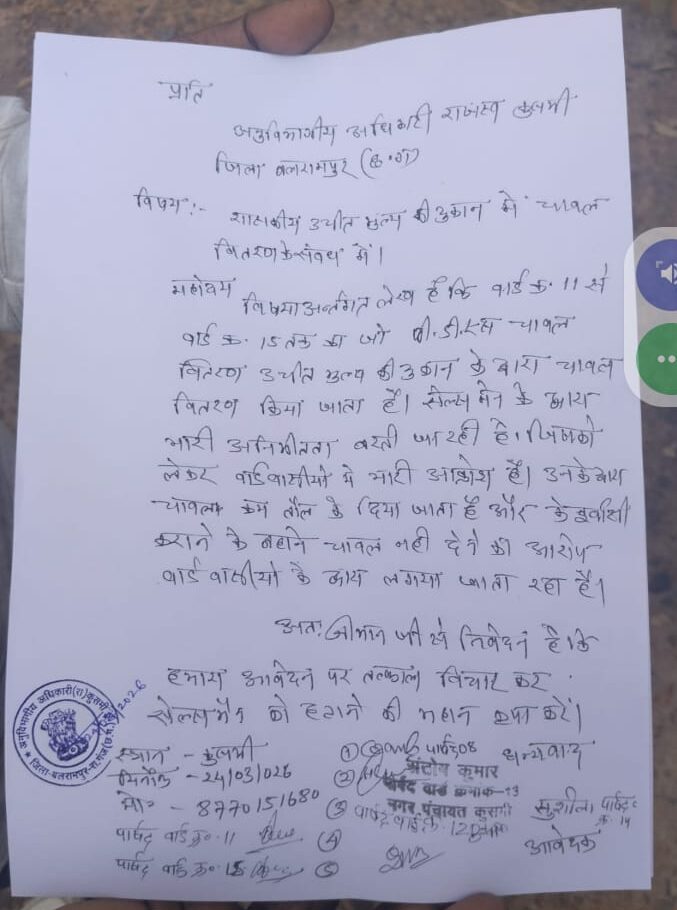 प्रति
अनुविभागीय अधिकारी राजस्व कुसमी
जिला बलरामपुर (छ.ग)
विषय :- शासकीय उचीत मुल्य की दुकान में चावल
वितरण के संबंध में।
महोदय
विषयाअर्न्तगत लेख है कि वार्ड क्र. 11 से
वार्ड क्र. 15 तक का जो पी.डी.एस चावल
वितरण उचीत मुल्य की दुकान के द्वारा चावल
वितरण किया जाता है। सेल्स मेन के द्वारा
भारी अनियमीतता बरती जा रही है। जिसको
लेकर वार्डवासीयो मे भारी आक्रोश है। उनके द्वारा
चावल कम तौल के दिया जाता है और केवाईसी
कराने के बहाने चावल नही देने का आरोप
वार्ड वासीयो के द्वारा लगाया जाता रहा है।
अतः श्रीमान जी से निवेदन है कि
हमारा आवेदन पर तत्काल विचार कर
सेल्समैन को हटाने की महान कृपा करें।
स्थान - कुसमी
① पार्षद 08
धन्यवाद
दिनाँक - 24/03/026
② संतोष कुमार
पार्षद वार्ड क्रमांक-13
नगर पंचायत कुसमी
मो० - 8770151680
③ पार्षद वार्ड क्र. 12
सुशीला पार्षद
क्र. 14
पार्षद वार्ड क्र० 11
④
आवेदक
पार्षद वार्ड क्र० 15
⑤
अनुविभागीय अधिकारी(रा)कुसमी
जिला-बलरामपुर-रा.गंज(छ.ग.)